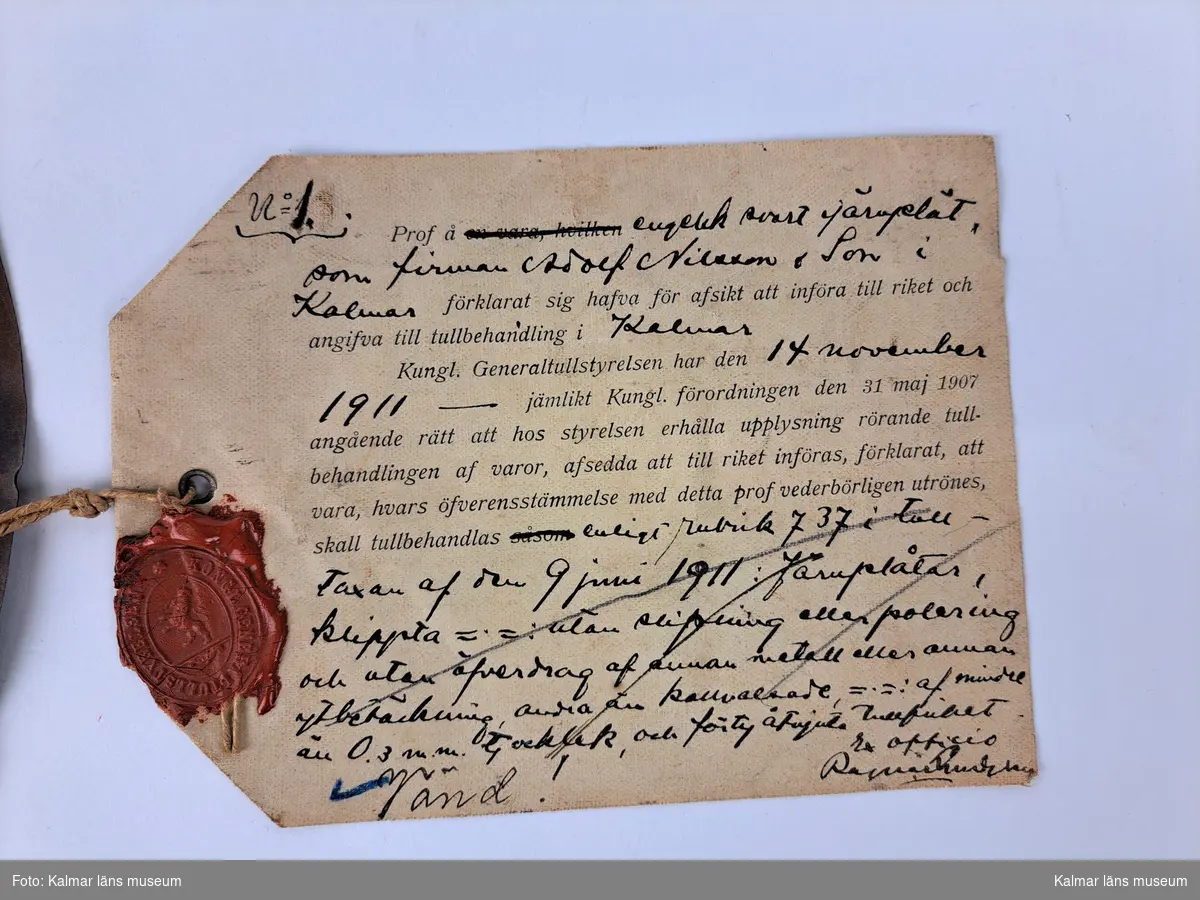 No 1.
Prof å en vara, hvilken engelsk svart järnplåt,
som firman Adolf Nilsson & Son i
Kalmar förklarat sig hafva för afsikt att införa till riket och
angifva till tullbehandling i Kalmar
Kungl. Generaltullstyrelsen har den 14 november
1911 — jämlikt Kungl. förordningen den 31 maj 1907
angående rätt att hos styrelsen erhålla upplysning rörande tull-
behandlingen af varor, afsedda att till riket införas, förklarat, att
vara, hvars öfverensstämmelse med detta prof vederbörligen utrönes,
skall tullbehandlas såsom enligt rubrik 737 i tull-
taxan af den 9 juni 1911: Järnplåtar,
klippta =.=: utan slipning eller polering
och utan öfverdrag af annan metall eller annan
ytbetäckning, andra än kallvalsade, =.=: af mindre
än 0.3 m.m. tjocklek, och förty åtnjuta tullfrihet.
Ex officio
Ragnar
Vänd!
Foto: Kalmar läns museum
Kalmar läns museum